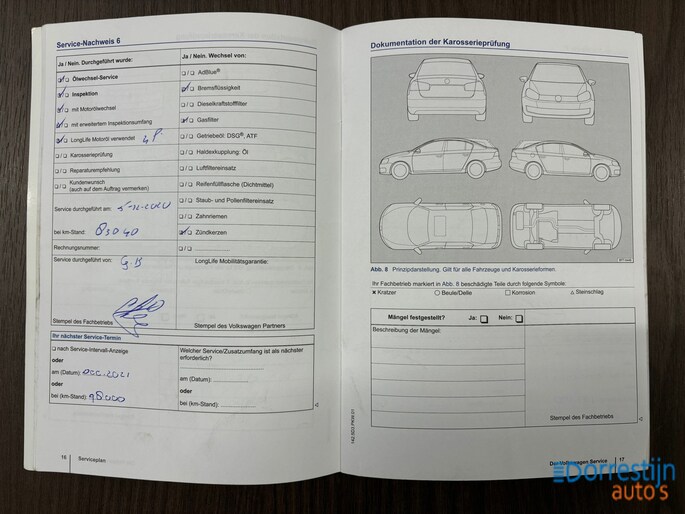 Service-Nachweis 6
Ja / Nein. Durchgeführt wurde:
Ölwechsel-Service
Inspektion
mit Motorölwechsel
mit erweitertem Inspektionsumfang
LongLife Motoröl verwendet
Karosserieprüfung
Reparaturempfehlung
Kundenwunsch
(auch auf dem Auftrag vermerken)
Service durchgeführt am:
bei km-Stand: 83040
Rechnungsnummer:
Service durchgeführt von: G.B
Stempel des Fachbetriebs
Ja / Nein. Wechsel von:
AdBlue®
Bremsflüssigkeit
Dieselkraftstofffilter
Gasfilter
Getriebeöl: DSG®, ATF
Haldexkupplung: Öl
Luftfiltereinsatz
Reifenfüllflasche (Dichtmittel)
Staub- und Pollenfiltereinsatz
Zahnriemen
Zündkerzen
LongLife Mobilitätsgarantie:
Stempel des Volkswagen Partners
Ihr nächster Service-Termin
nach Service-Intervall-Anzeige
oder
am (Datum): Dec. 2021
oder
bei (km-Stand): 98000
Welcher Service/Zusatzumfang ist als nächster
erforderlich?
am (Datum):
oder
bei (km-Stand):
16 Serviceplan
Dokumentation der Karosserieprüfung
Abb. 8 Prinzipdarstellung. Gilt für alle Fahrzeuge und Karosserieformen.
Ihr Fachbetrieb markiert in Abb. 8 beschädigte Teile durch folgende Symbole:
× Kratzer ○ Beule/Delle □ Korrosion △ Steinschlag
Mängel festgestellt? Ja: Nein:
Beschreibung der Mängel:
Stempel des Fachbetriebs
Der Volkswagen Service 17
Dorrestijn
auto's